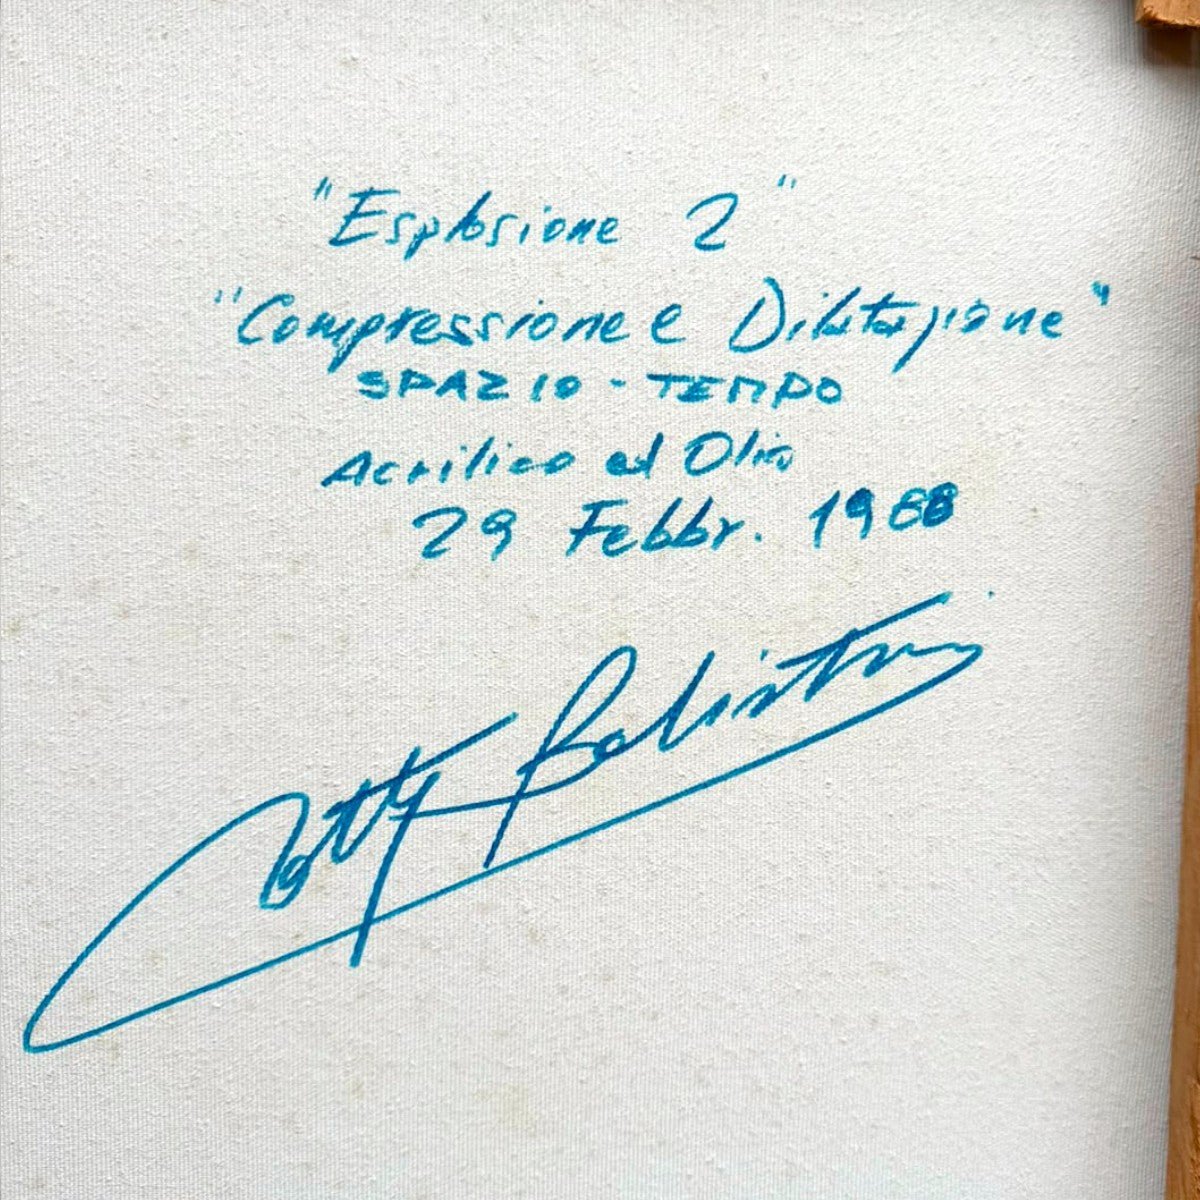 "Esplosione 2"
"Compressione e Dilatazione"
SPAZIO - TEMPO
Acrilico ed Olio
29 Febbr. 1988
Balistri